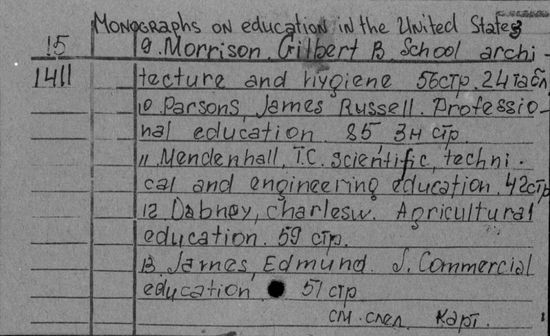 Monographs on education in the United States
15 9. Morrison. Gilbert B. School archi-
1411 tecture and hygiene 56стр. 24табл
10 Parsons, James Russell. Professio-
nal education. 85, 3н стр.
11. Mendenhall, T.C. scientific, techni.
cal and engineering education. 42стр
12 Dabney, charlesw. Agricultural
education. 59 стр.
13. James, Edmund. J. Commercial
education 51 стр
см. след. карт.